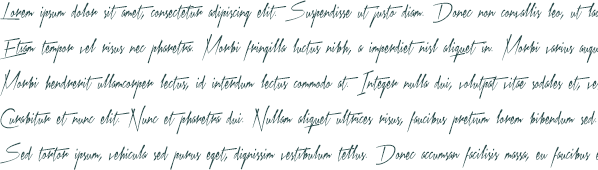 Lorem ipsum dolor sit amet, consectetur adipiscing elit. Suspendisse ut justo diam. Donec non convallis leo, ut lac
Etiam tempor vel risus nec pharetra. Morbi fringilla luctus nibh, a imperdiet nisl aliquet in. Morbi varius augu
Morbi hendrerit ullamcorper lectus, id interdum lectus commodo at. Integer nulla dui, volutpat vitae sodales et, ve
Curabitur et nunc elit. Nunc et pharetra dui. Nullam aliquet ultrices risus, faucibus pretium lorem bibendum sed.
Sed tortor ipsum, vehicula sed purus eget, dignissim vestibulum tellus. Donec accumsan facilisis massa, eu faucibus